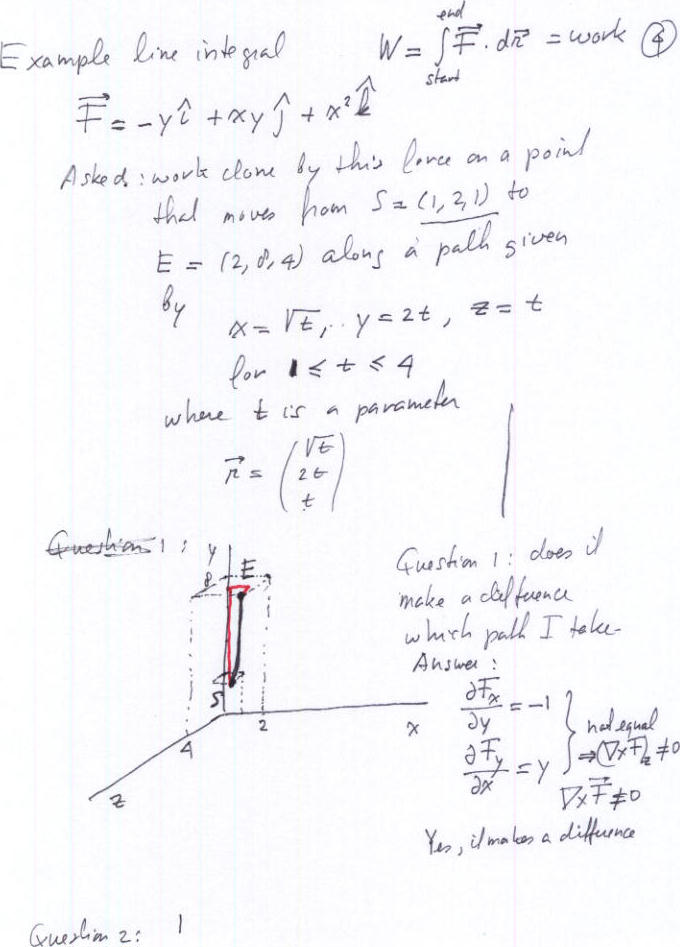 Example line integral
W = ∫ F⃗ · dr⃗ = work ④
end
start
F⃗ = -y î + xy ĵ + x² k̂
Asked: work done by this force on a point
that moves from S = (1, 2, 1) to
E = (2, 8, 4) along a path given
by
x = √t, y = 2t, z = t
for 1 ≤ t ≤ 4
where t is a parameter
r⃗ = (√t
2t
t)
Question 1:
y
8
E
S
2
x
4
z
Question 1: does it
make a difference
which path I take
Answer:
∂Fx/∂y = -1
∂Fy/∂x = y
} not equal
⇒ (∇×F⃗)z ≠ 0
∇×F⃗ ≠ 0
Yes, it makes a difference
Question 2: